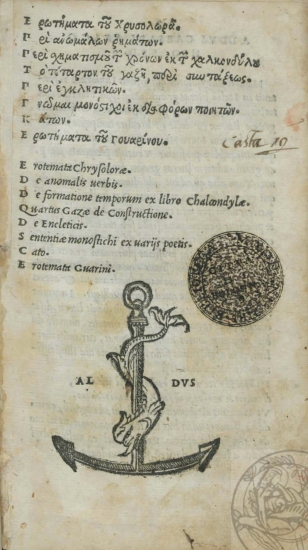 Ερωτήματα τοῦ Χρυσολωρᾶ.
Περὶ ἀνωμάλων ῥημάτων.
Περὶ σχηματισμοῦ τῶν χρόνων ἐκ τῶν χαλκονδύλου
Τὸ τέταρτον τοῦ γαζῆ, περὶ συντάξεως.
Περὶ ἐγκλητικῶν.
Γνῶμαι μονόστιχοι ἐκ διαφόρων ποιητῶν.
Κάτων.
Ερωτήματα τοῦ Γουαρίνου.
Casta 10
Erotemata Chrysoloræ.
De anomalis uerbis.
De formatione temporum ex libro Chalcondylæ.
Quartus Gazæ de Constructione.
De Encleticis.
Sententiæ monostichi ex uarijs poetis.
Cato.
Erotemata Guarini.
AL DVS